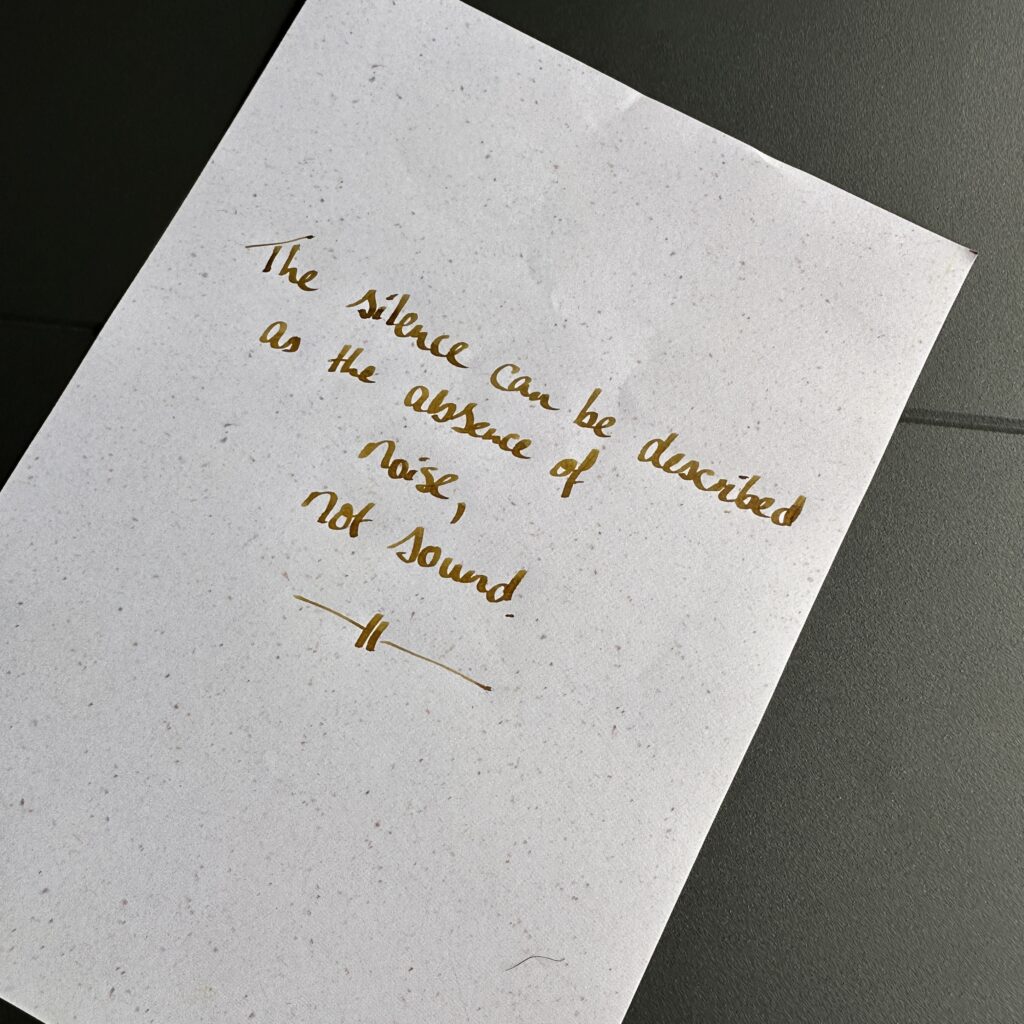 The silence can be described
as the absence of
noise,
not sound.